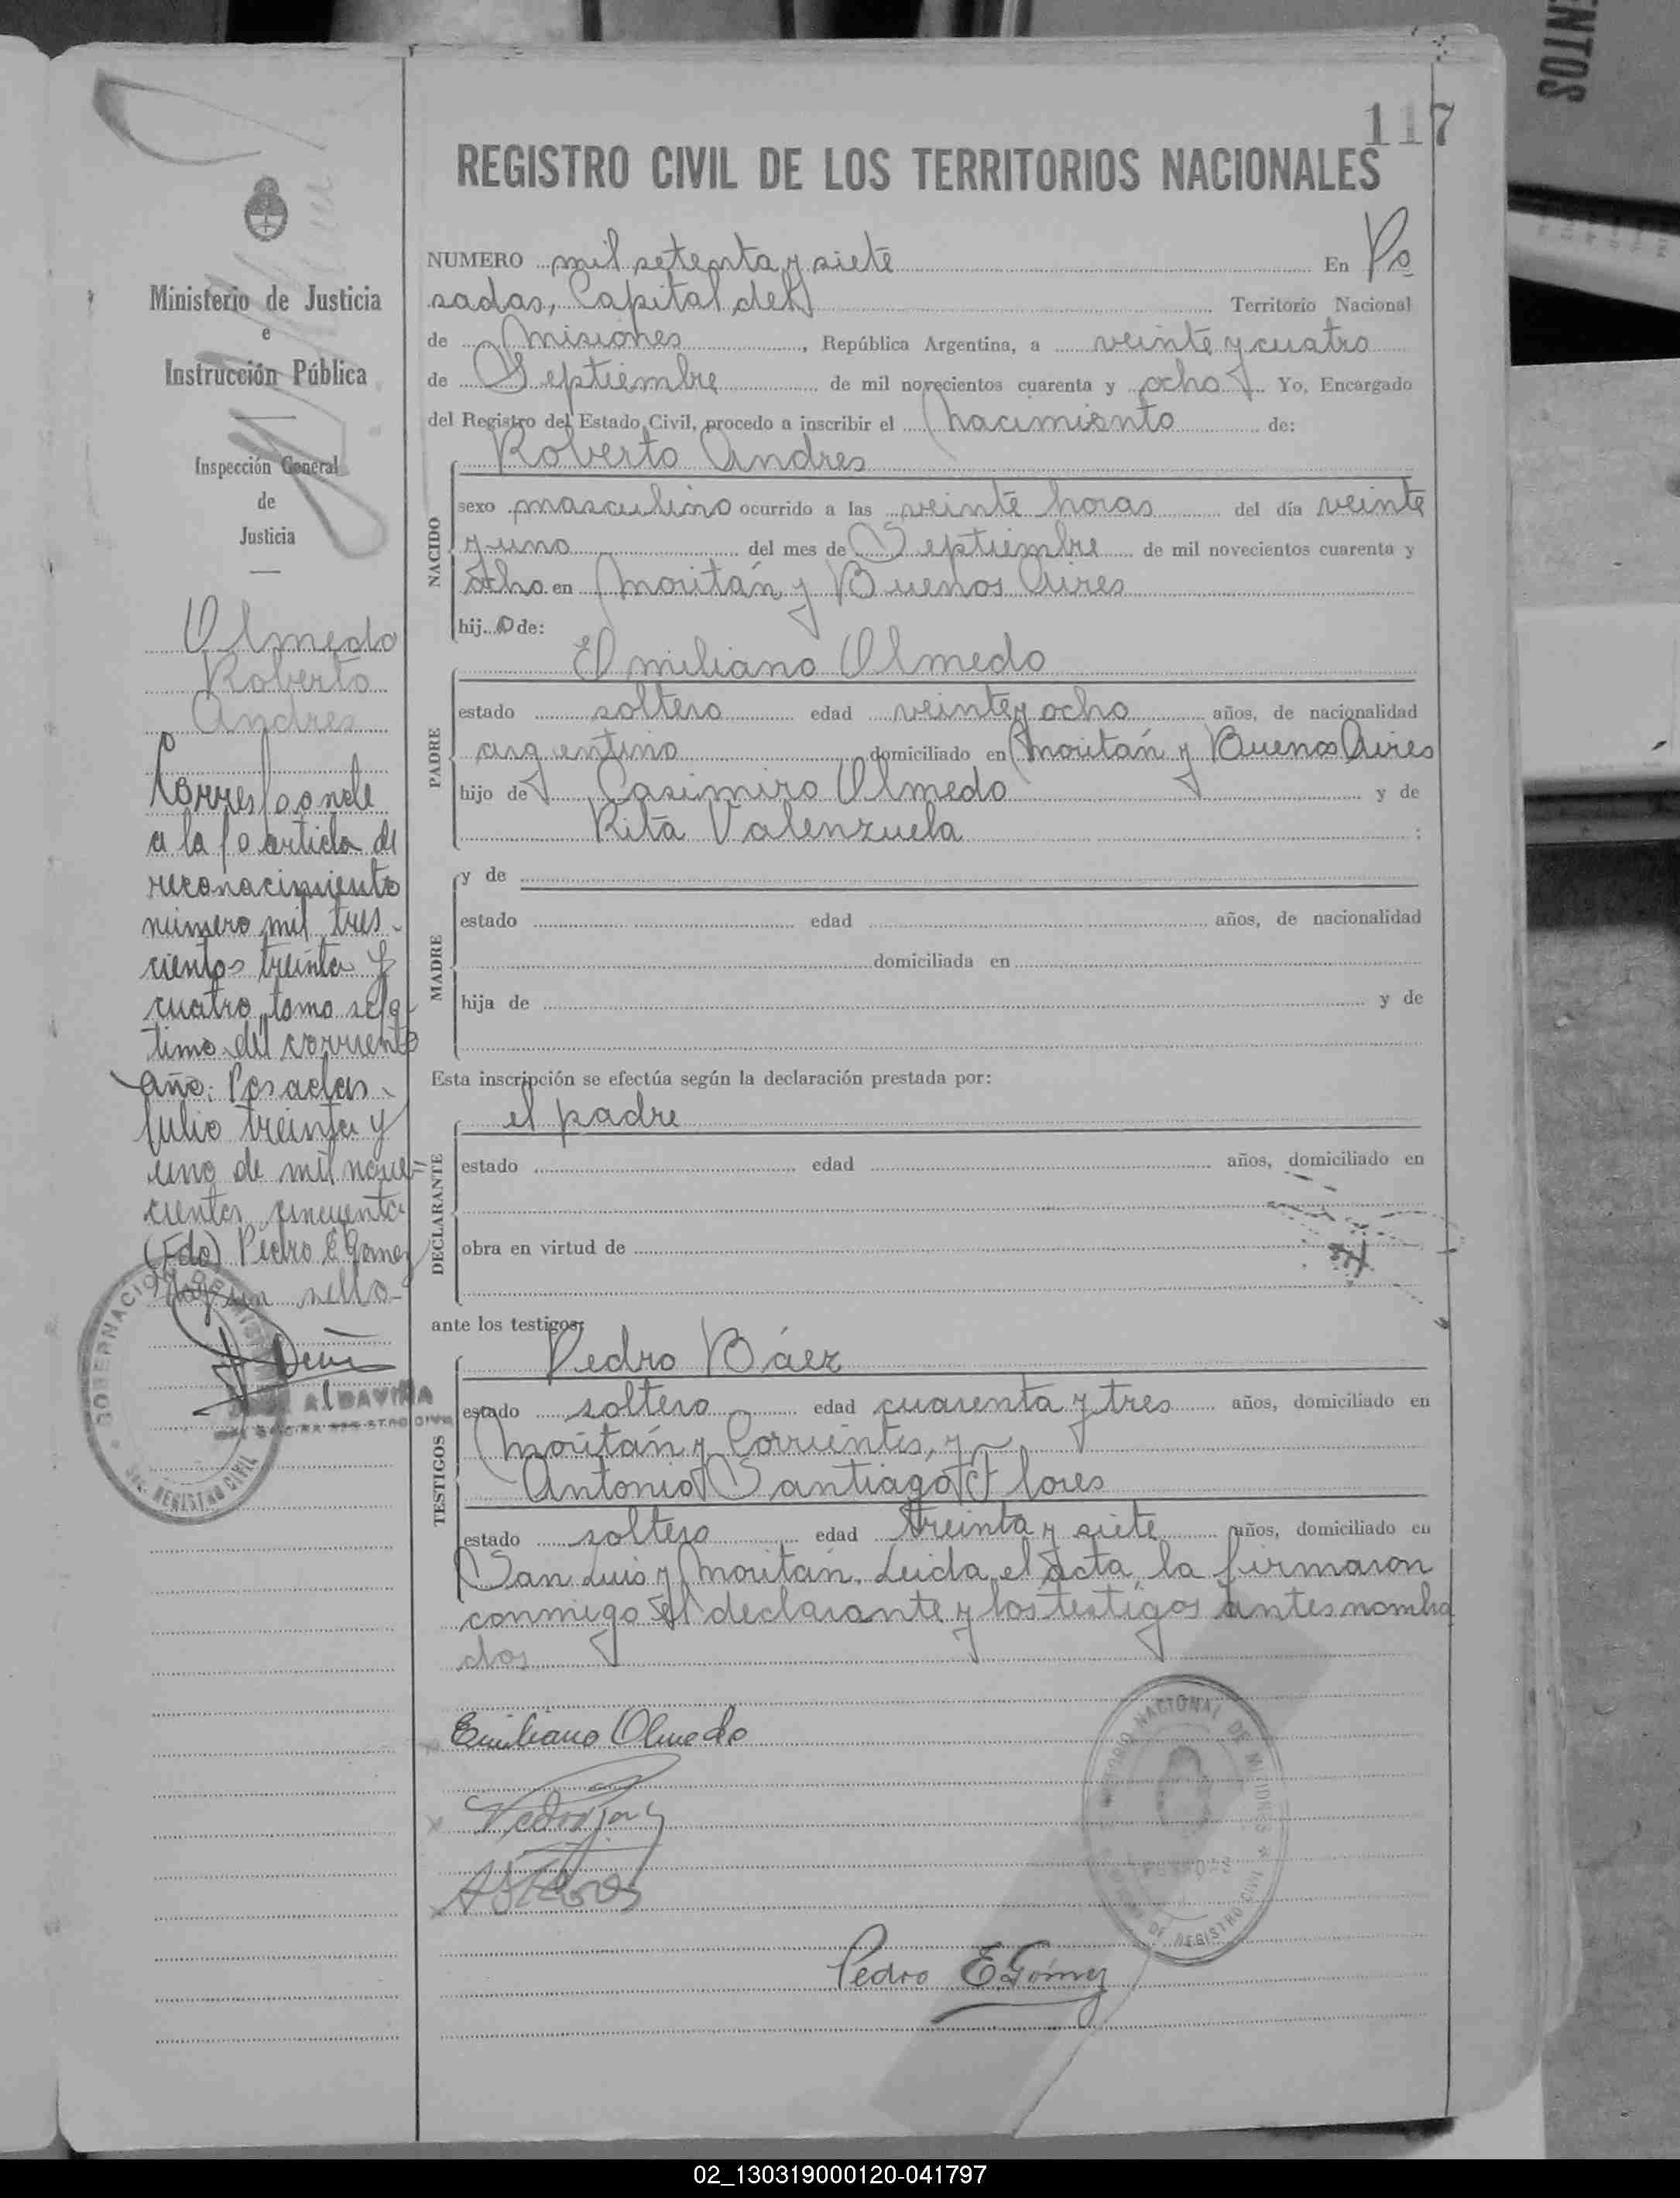 ENTOS
117
REGISTRO CIVIL DE LOS TERRITORIOS NACIONALES
Ministerio de Justicia
e
Instrucción Pública
Inspección General
de
Justicia
Olmedo
Roberto
Andres
Corresponde
a la partida de
reconocimiento
número mil tres-
cientos treinta y
cuatro tomo sép-
timo del corriente
año: Posadas
Julio treinta y
uno de mil nove=
cientos cincuenta
(Fdo) Pedro E Gomez
Hay un sello-
GOBERNACION DE MISIONES
REGISTRO CIVIL
ALDAVIÑA
NUMERO mil setenta y siete En Po
sadas, Capital del Territorio Nacional
de Misiones, República Argentina, a veinte y cuatro
de Septiembre de mil novecientos cuarenta y ocho Yo, Encargado
del Registro del Estado Civil, procedo a inscribir el nacimiento de:
Roberto Andres
NACIDO
sexo masculino ocurrido a las veinte horas del día veinte
y uno del mes de Septiembre de mil novecientos cuarenta y
ocho en Moritán y Buenos Aires
hijo de:
PADRE
Emiliano Olmedo
estado soltero edad veinte y ocho años, de nacionalidad
argentino domiciliado en Moritán y Buenos Aires
hijo de Casimiro Olmedo y de
Rita Valenzuela :
MADRE
y de
estado edad años, de nacionalidad
domiciliada en
hija de y de
Esta inscripción se efectúa según la declaración prestada por:
el padre
DECLARANTE
estado edad años, domiciliado en
obra en virtud de
ante los testigos:
TESTIGOS
Pedro Báez
estado soltero edad cuarenta y tres años, domiciliado en
Moritán y Corrientes, y
Antonio Santiago Flores
estado soltero edad treinta y siete años, domiciliado en
San Luis y Moritán. Leida el acta, la firmaron
conmigo el declarante y los testigos antes nombra
dos
Emiliano Olmedo
ASFlores
TERRITORIO NACIONAL DE MISIONES
DE REGISTRO CIVIL
Pedro E. Gómez
02_130319000120-041797